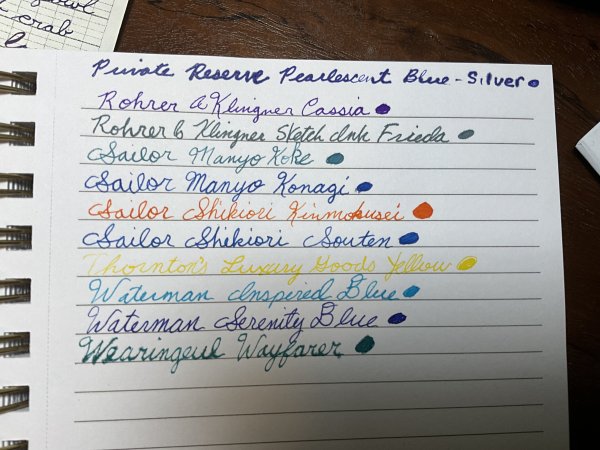 crab
Private Reserve Pearlescent Blue - Silver
Rohrer & Klingner Cassia
Rohrer & Klingner Sketch Ink Frieda
Sailor Manyo Koke
Sailor Manyo Konagi
Sailor Shikiori Kinmokusei
Sailor Shekiori Souten
Thornton's Luxury Goods Yellow
Waterman Inspired Blue
Waterman Serenity Blue
Wearingeul Wayfarer